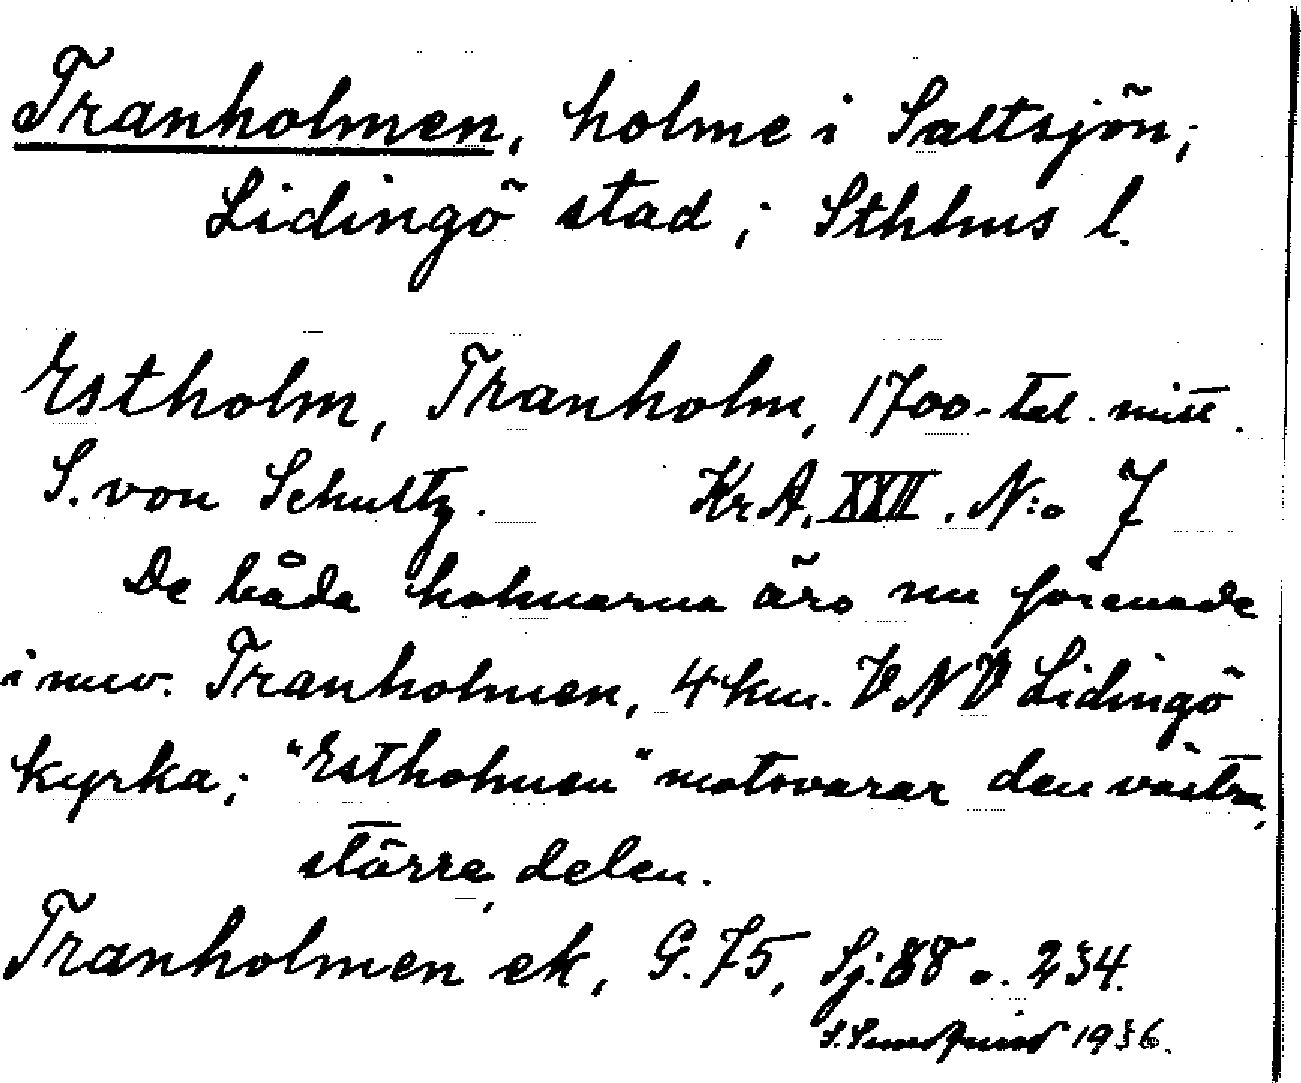 Tranholmen, holme i Saltsjön;
Lidingö stad; Sthlms l.
Estholm, Tranholm, 1700-tal. mitt.
S. von Schultz. Kr.A. XXII. N:o 7
De båda holmarna äro nu förenade
i nuv. Tranholmen, 4 km. VNV Lidingö
kyrka; "Estholmen" motsvarar den västra,
större, delen.
Tranholmen ek, G. 75, Sj: 88 o. 234.
1936.